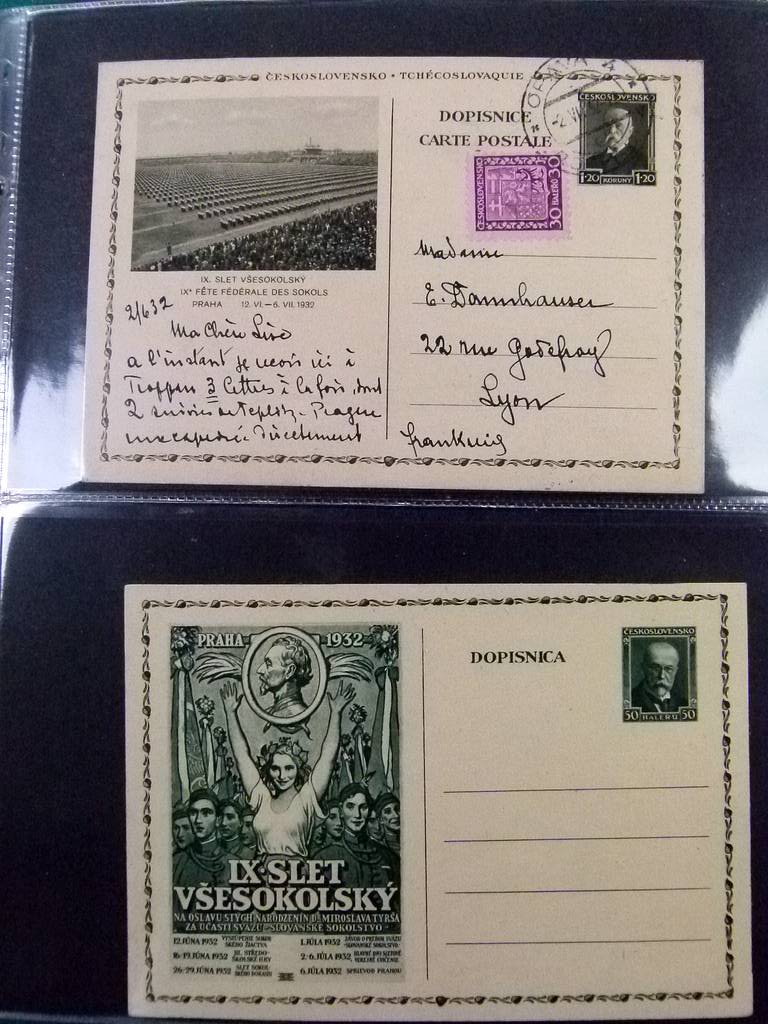 ČESKOSLOVENSKO • TCHÉCOSLOVAQUIE
DOPISNICE
CARTE POSTALE
OPAVA 4
ČESKOSLOVENSKO
1·20 KORUNY 1·20
ČESKOSLOVENSKO
30 HALÉŘŮ 30
IX. SLET VŠESOKOLSKÝ
IXᵉ FÊTE FÉDÉRALE DES SOKOLS
PRAHA 12. VI. – 6. VII. 1932
2/6 32
Ma Chère
a l'instant je reçois ici à
Troppau 3 lettres à la fois, dont
2 Teplitz - Prague
Madame
E. Dannhauser
22 rue Godefroy
Lyon
Frankreich
PRAHA 1932
IX·SLET
VŠESOKOLSKÝ
NA OSLAVU STÝCH NARODZENÍN Dr MIROSLAVA TYRŠA
ZA ÚČASTI SVAZU „SLOVANSKÉ SOKOLSTVO“
12. JÚNA 1932
16-19. JÚNA 1932
26-29. JÚNA 1932
1. JÚLA 1932
2-6. JÚLA 1932
6. JÚLA 1932 SPRIEVOD PRAHOU
DOPISNICA
ČESKOSLOVENSKO
50 HALÉRŮ 50